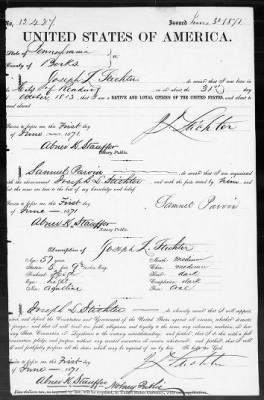 No. 12427 Issued June 3d 1871
UNITED STATES OF AMERICA.
State of Pennsylvania
County of Berks
I, Joseph L. Stichter, do swear that I was born in
City of Reading on or about the 31st day
October 1813, that I am a NATIVE AND LOYAL CITIZEN OF THE UNITED STATES, and about
to travel abroad.
Sworn to before me this First
day of June 1871.
J L Stichter
Abner K. Stauffer
Notary Public.
I, Samuel Parvin do swear that I am acquainted
with the above-named Joseph L. Stichter and with the facts stated by him, and
that the same are true to the best of my knowledge and belief.
Sworn to before me this First
day of June 1871
Samuel Parvin
Abner K. Stauffer
Notary Public.
Description of Joseph L. Stichter
Age: 57 years Mouth: medium
Stature: 5 feet inches, Eng. Chin: medium
Forehead: Hair: dark
Eyes: light Complexion: dark
Nose: Aquiline Face: oval
I, Joseph L. Stichter do solemnly swear that I will support,
protect, and defend the Constitution and Government of the United States against all enemies, whether domestic
or foreign; and that I will bear true faith, allegiance, and loyalty to the same, any ordinance, resolution, or law
of any State, Convention, or Legislature to the contrary notwithstanding; and further, that I do this with a full
determination, pledge, and purpose, without any mental reservation or evasion whatsoever; and further, that I will
well and faithfully perform all the duties which may be required of me by law: So help me God.
Sworn to before me this First
day of June 1871
J L Stichter
Abner K. Stauffer Notary Public